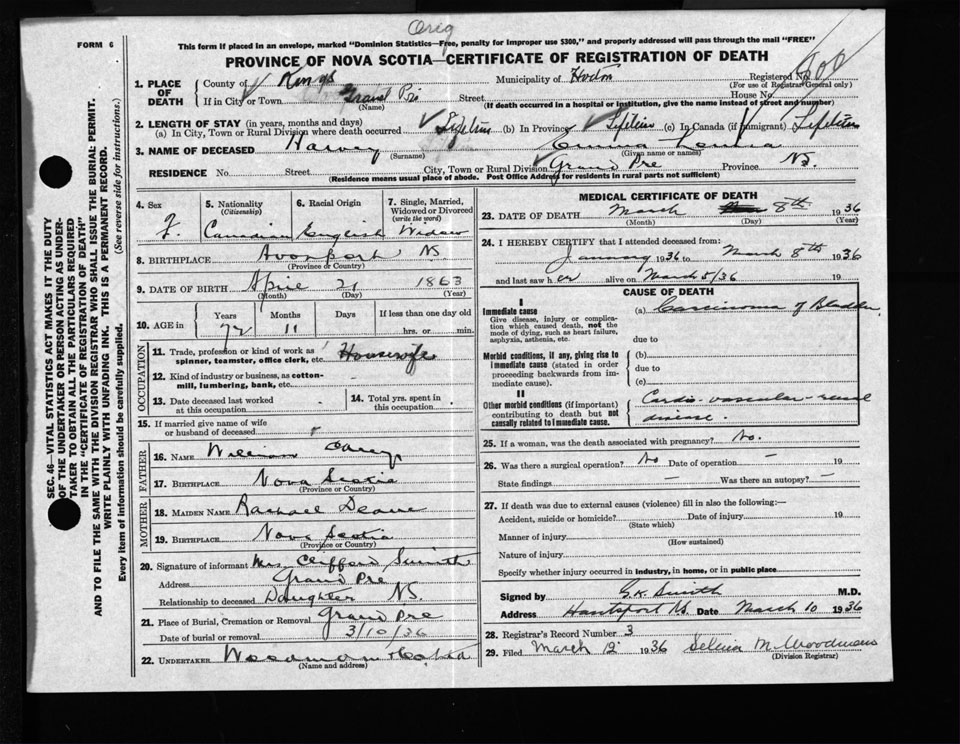 Orig
FORM 6
This form if placed in an envelope, marked "Dominion Statistics—Free, penalty for improper use $300," and properly addressed will pass through the mail "FREE"
PROVINCE OF NOVA SCOTIA—CERTIFICATE OF REGISTRATION OF DEATH
1. PLACE OF DEATH County of Kings Municipality of Horton Registered No.
(For use of Registrar General only)
If in City or Town Grand Pre Street House No.
(Name) (If death occurred in a hospital or institution, give the name instead of street and number)
2. LENGTH OF STAY (in years, months and days)
(a) In City, Town or Rural Division where death occurred Lifetime (b) In Province Lifetime (c) In Canada (if immigrant) Lifetime
3. NAME OF DECEASED Harvey Emma
(Surname) (Given name or names)
RESIDENCE No. Street City, Town or Rural Division Grand Pre Province NS.
(Residence means usual place of abode. Post Office Address for residents in rural parts not sufficient)
4. Sex F.
5. Nationality (Citizenship) Canadian
6. Racial Origin English
7. Single, Married, Widowed or Divorced (write the word) Widow
8. BIRTHPLACE Avonport NS
(Province or Country)
9. DATE OF BIRTH April 21 1863
(Month) (Day) (Year)
10. AGE in Years Months Days If less than one day old
72 11 hrs. or min.
OCCUPATION
11. Trade, profession or kind of work as spinner, teamster, office clerk, etc. Housewife
12. Kind of industry or business, as cotton-mill, lumbering, bank, etc.
13. Date deceased last worked at this occupation
14. Total yrs. spent in this occupation
15. If married give name of wife or husband of deceased
FATHER
16. NAME William
17. BIRTHPLACE Nova Scotia
(Province or Country)
MOTHER
18. MAIDEN NAME Rachael
19. BIRTHPLACE Nova Scotia
(Province or Country)
20. Signature of informant Mrs Smith
Address Grand Pre
Relationship to deceased Daughter NS.
21. Place of Burial, Cremation or Removal Grand Pre
Date of burial or removal 3/10/36
22. UNDERTAKER
(Name and address)
MEDICAL CERTIFICATE OF DEATH
23. DATE OF DEATH March 8th 1936
(Month) (Day) (Year)
24. I HEREBY CERTIFY that I attended deceased from:
January 1936 to March 8th 1936
and last saw her alive on March 5/36 19
CAUSE OF DEATH
I
Immediate cause (a) Carcinoma of Bladder
Give disease, injury or complication which caused death, not the mode of dying, such as heart failure, asphyxia, asthenia, etc.
due to
Morbid conditions, if any, giving rise to immediate cause (stated in order proceeding backwards from immediate cause).
(b)
due to
(c)
II
Other morbid conditions (if important) contributing to death but not causally related to immediate cause.
Cardio-vascular-renal
disease.
25. If a woman, was the death associated with pregnancy? No.
26. Was there a surgical operation? No Date of operation — 19
State findings — Was there an autopsy? —
27. If death was due to external causes (violence) fill in also the following:—
Accident, suicide or homicide? Date of injury 19
(State which)
Manner of injury
(How sustained)
Nature of injury
Specify whether injury occurred in industry, in home, or in public place
Signed by G.K. Smith M.D.
Address Hantsport NS. Date March 10 1936
28. Registrar's Record Number 3
29. Filed March 12 1936
(Division Registrar)
SEC. 46—VITAL STATISTICS ACT MAKES IT THE DUTY
OF THE UNDERTAKER OR PERSON ACTING AS UNDERTAKER TO OBTAIN ALL THE PARTICULARS REQUIRED
IN THE "CERTIFICATE OF REGISTRATION OF DEATH"
AND TO FILE THE SAME WITH THE DIVISION REGISTRAR WHO SHALL ISSUE THE BURIAL PERMIT.
WRITE PLAINLY WITH UNFADING INK. THIS IS A PERMANENT RECORD.
Every item of information should be carefully supplied. (See reverse side for instructions.)